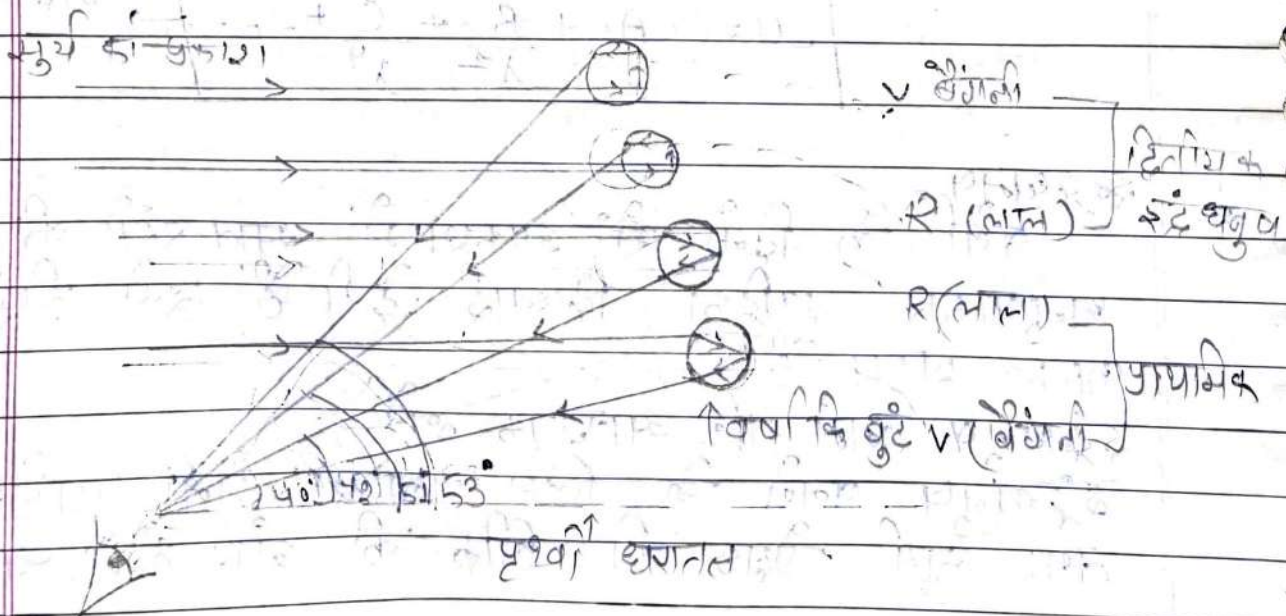 सुर्य का प्रकाश
V बैंगनी
द्वितीयक
R (लाल) इंद्रधनुष
R (लाल)
प्राथमिक
वर्षा कि बुंदे V (बैंगनी)
40° 42° 51° 53°
पृथ्वी धरातल